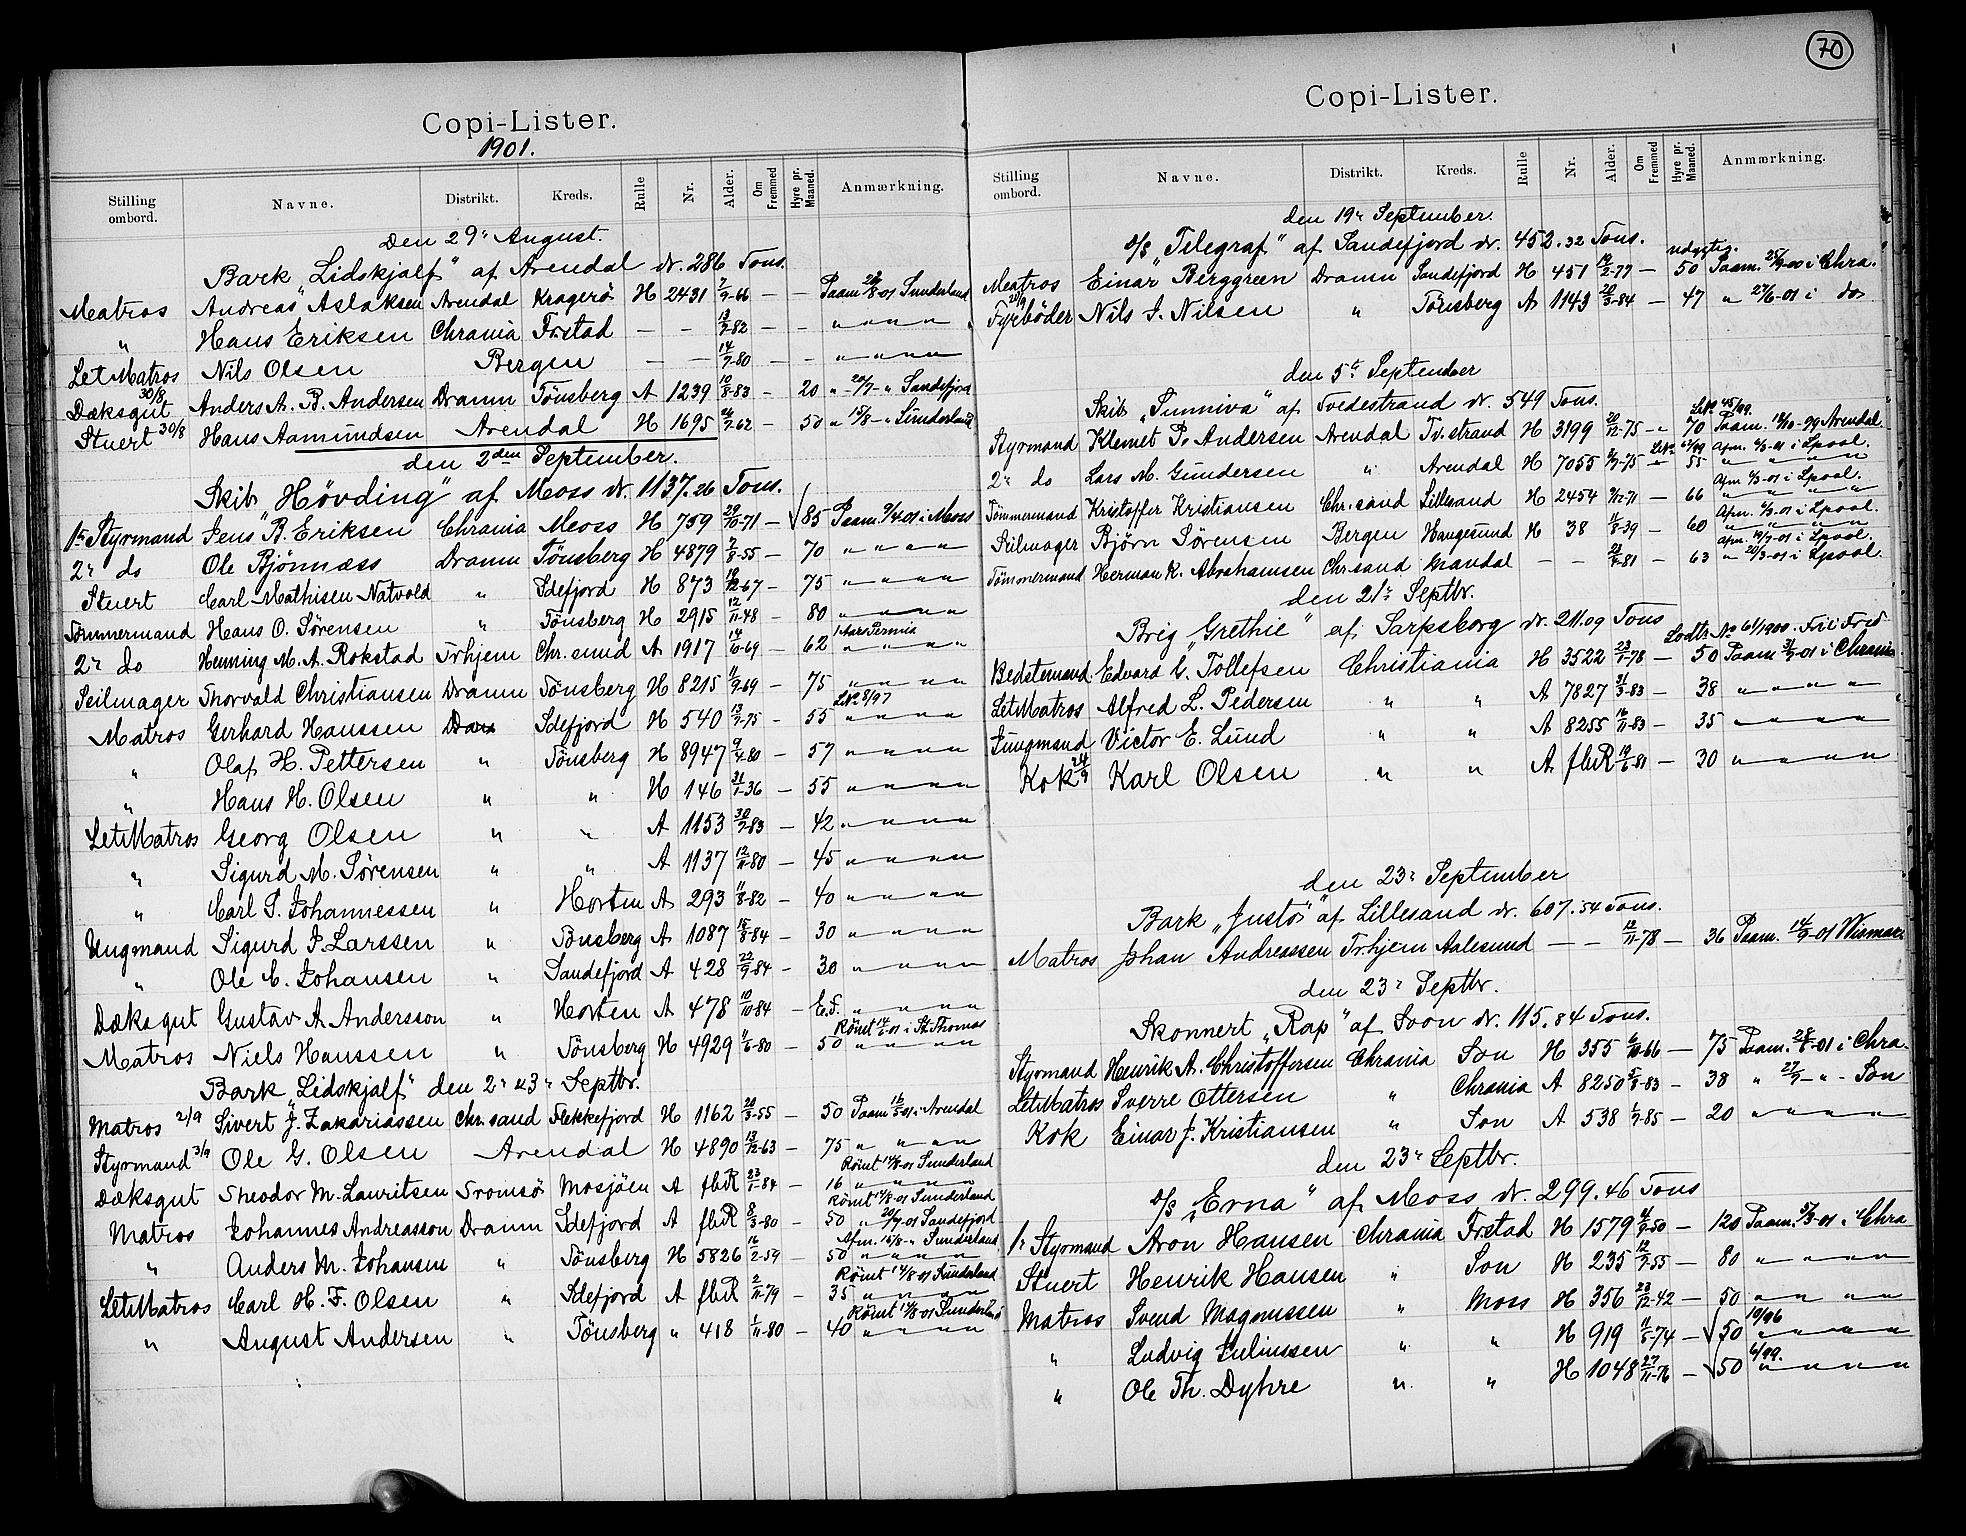 70
Copi-Lister.
1901.
Stilling ombord. Navne. Distrikt. Kreds. Rulle Nr. Alder. Om Fremmed Hyre pr. Maaned. Anmærkning.
Den 29r August.
Bark „Lidskjalf" af Arendal dr. 286 Tons.
Matros Andreas Aslaksen Arendal Kragerö H 2431 7/9-66 — — Paam 28/8-01 Sunderland
" Hans Eriksen Chrania Frstad — — 13/7-82 — — " " " "
LetMatros Nils Olsen Bergen — — 14/7-80 — — " " " "
Dæksgut 30/8 Anders A. B. Andersen Dramn Tönsberg A 1239 10/8-83 — 20 " 20/7-" Sandefjord
Stuert 30/8 Hans Aamundsen Arendal H 1695 /7-62 — 50 " 15/8-" Sunderland
den 2den September.
Skib „Hövding" af Moss dr. 1137.26 Tons.
1r Styrmand Jens B. Eriksen Chrania Moss H 759 29/10-71 — 85 Paam. 9/4-01 i Moss
2r do Ole Bjönnæss Dramn Tönsberg H 4879 7/8-55 — 70 " " " "
Stuert Carl Mathisen Natvold " Sdefjord H 873 18/12-67 — 75 " " " "
Tömmermand Hans O. Sörensen " Tönsberg H 2915 12/11-48 — 80 " " " "
2r do Henning M. A. Rokstad Trhjem Chr.sund A 1917 14/10-69 — 62 1 Aars Permis " " " "
Seilmager Thorvald Christiansen Dramn Tönsberg H 8215 11/9-69 — 75 " " " "
Matros Gerhard Hanssen Dram Sdefjord H 540 13/7-75 — 55 8/97 " " " "
" Olaf H. Pettersen " Tönsberg H 8947 9/4-80 — 57 " " " "
" Hans H. Olsen " " H 146 31/1-36 — 55 " " " "
LetMatros Georg Olsen " " A 1153 30/7-83 — 42 " " " "
" Sigurd M. Sörensen " " A 1137 12/11-80 — 45 " " " "
" Carl S. Johannessen " Horten A 293 11/8-82 — 40 " " " "
Ungmand Sigurd J Larssen " Tönsberg A 1087 15/8-84 — 30 " " " "
" Ole C. Johansen " Sandefjord A 428 22/9-84 — 30 " " " "
Dæksgut Gustav A. Andersson " Horten A 478 10/10-84 — E.F. " " " "
Matros Niels Hanssen " Tönsberg H 4929 11/6-80 — 50 Römt 14/-01 i St. Thomas " " " "
Bark „Lidskjalf" den 2r & 3r Septbr.
Matros 2/9 Sivert J. Zakariassen Chr.sand Flekkefjord H 1162 20/3-55 — 50 Paam 16/5-01 i Arendal
Styrmand 3/9 Ole G. Olsen Arendal H 4890 13/12-63 — 75 " " " "
Dæksgut Theodor M. Lauritsen Tromsö Mosjöen A fluR 23/1-84 — 16 Römt 14/8-01 Sunderland " " " "
Matros Johannes Andreasson Dramn Sdefjord A fluR 8/3-80 — 50 Römt 14/8-01 Sunderland " 20/7-01 Sandefjord
" Anders M. Johansen " Tönsberg H 5826 16/2-59 — 50 Afm. 16/8-" Sunderland " " " "
LetMatros Carl H. F. Olsen " Sdefjord A fluR 2/11-79 — 35 Römt 14/8-01 Sunderland " " " "
" August Andersen " Tönsberg " 418 1/11-80 — 40 Römt 14/8-01 Sunderland " " " "
Copi-Lister.
Stilling ombord. Navne. Distrikt. Kreds. Rulle Nr. Alder. Om Fremmed Hyre pr. Maaned. Anmærkning.
den 19r September.
D/S „Telegraf" af Sandefjord dr. 452.32 Tons.
Matros Einar Berggreen Dramn Sandefjord H 451 19/2-77 — 50 udygtig. Paam. 25/9-00 i Chra.
Fyrböder 20/9 Nils J. Nilsen " Tönsberg A 1143 20/3-84 — 47 " 27/6-01 i do
den 5r September
Skib „Sunniva" af Tvedestrand dr. 549 Tons.
Styrmand Klemet P. Andersen Arendal Tv.strand H 3199 20/12-75 — " 70 45/99. Paam. 18/10-99 Arendal
2r do Lars M. Gundersen " Arendal H 7055 /7-75 — 55 Afm. /3-01 i Lpool. " " " "
Tömmermand Kristoffer Kristiansen Chr.sand Lillesand H 2454 /12-71 — 66 Afm /3-01 i Lpool. " " " "
Seilmager Björn Sörensen Bergen Haugesund H 38 11/8-39 — 60 Afm. /3-01 i Lpool. " " " "
Tömmermand Herman K. Abrahamsen Chr.sand Mandal — — /7-81 — 63 Afm. 19/7-01 i Lpool. " 20/3-01 i Lpool.
den 21r Septbr.
Brig „Grethie" af Sarpsborg dr. 211.09 Tons
Bedstemand Edvard G. Tollefsen Christiania H 3522 23/1-78 — 50 Lodtb. No 61/1900. Paam 3/9-01 i Chrania
LetMatros Alfred L. Pedersen " " A 7827 31/3-83 — 38 " " " "
Jungmand Victor E. Lund " " A 8255 16/11-83 — 35 " " " "
Kok 24/9 Karl Olsen " " A fluR 19/6-81 — 30 " " " "
den 23r September
Bark „Justo" af Lillesand dr. 607.54 Tons.
Matros Johan Andreassen Tr.hjem Aalesund — — 12/11-78 — 36 Paam. 14/9-01 Wismar
den 23r Septbr.
Skonnert „Rap" af Soon dr. 115.84 Tons.
Styrmand Henrik A. Christoffersen Chrania Son H 355 6/10-66 — 75 Paam. 28/8-01 i Chra.
LetMatros Sverre Ottersen " Chrania A 8250 5/8-83 — 38 " 27/7-" - Son
Kok Einar J. Kristiansen " Son A 538 /7-85 — 20 " " " "
den 23r Septbr.
D/S „Erna" af Moss dr. 299.46 Tons
1r Styrmand Aron Hansen Chrania Frstad H 1579 /9-50 — 120 Paam. /3-01 i Chra
Stuert Henrik Hansen " Son H 235 12/7-55 — 80 " " " "
Matros Svend Magnussen " Moss H 356 23/12-42 — 50 " " " "
" Ludvig Juliussen " " H 919 11/5-74 — 50 10/96 " " " "
" Ole Th. Dyhre " " H 1048 27/11-76 — 50 6/99. " " " "